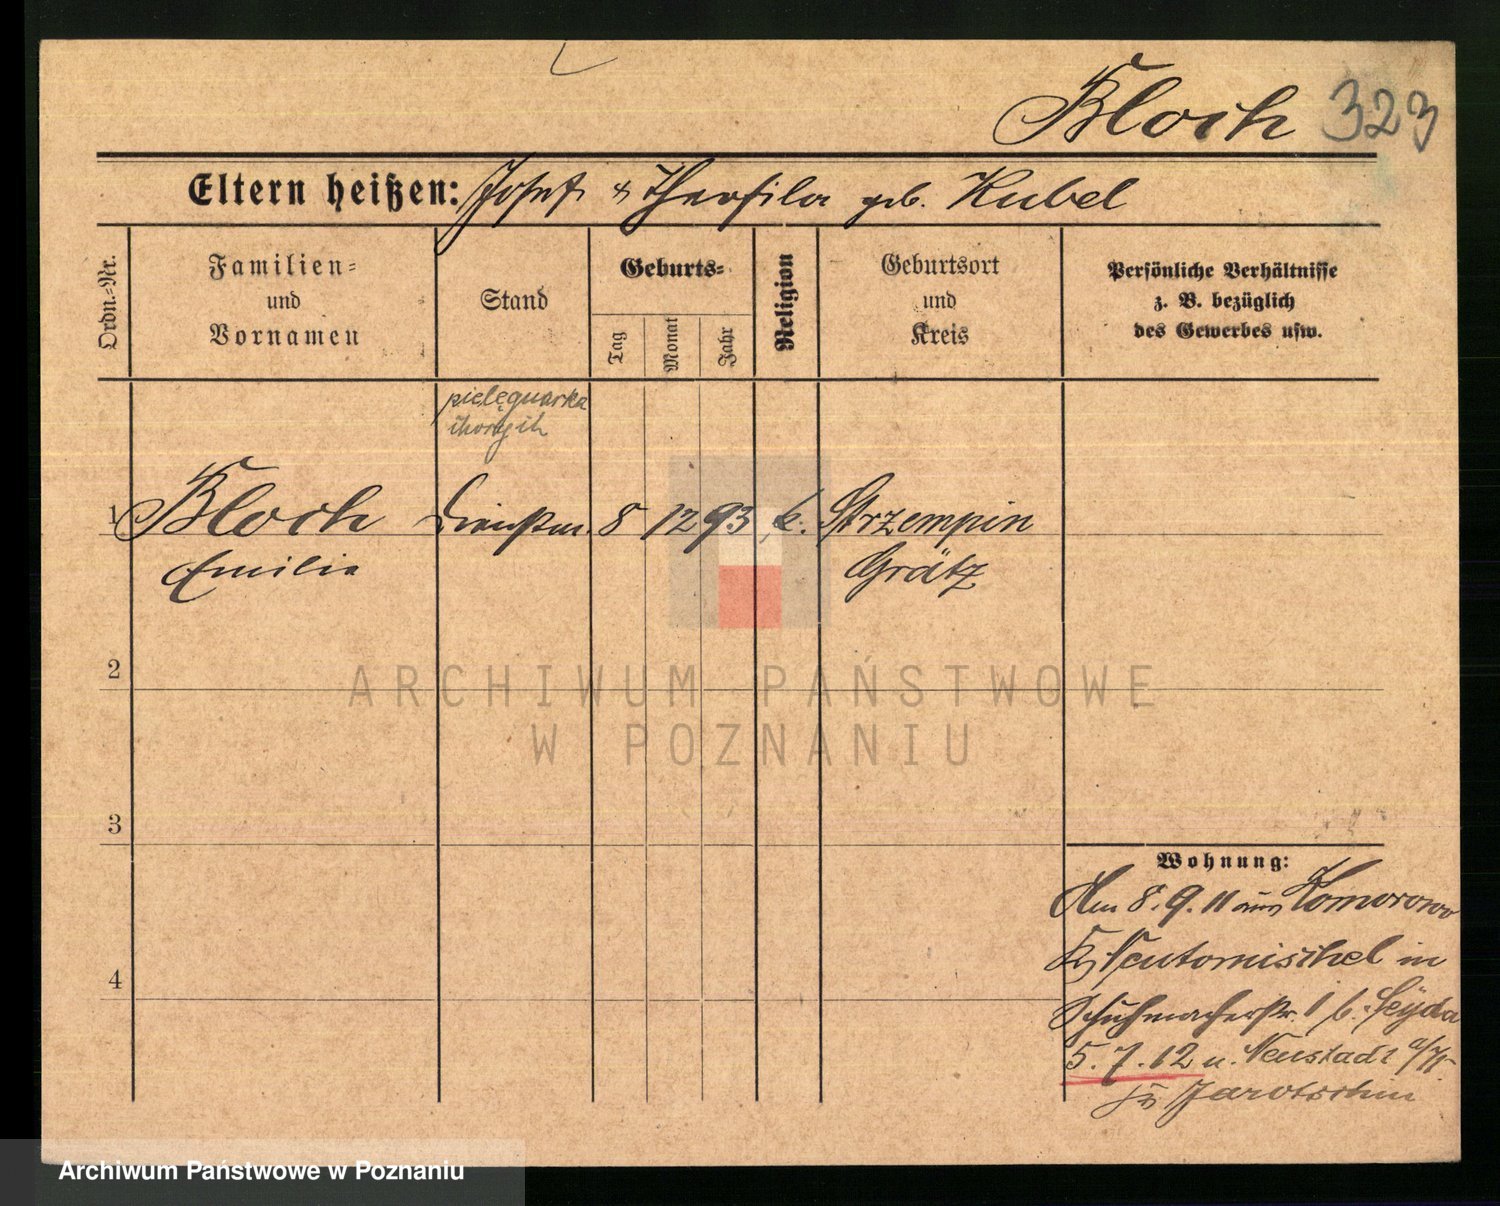 Bloch 323
Eltern heißen: Josef & Theofila geb. Kubel
Ordn.-Nr.
Familien-
und
Vornamen
Stand
Geburts-
Tag
Monat
Jahr
Religion
Geburtsort
und
Kreis
Persönliche Verhältnisse
z. B. bezüglich
des Gewerbes usw.
pielęgnarka
chorych
1 Bloch Dienstm. 8 12 93 k. Strzempin
Emilia Grätz
2
3
4
Wohnung:
Am 8.9.11 aus Komorowo
Kr Neutomischel in
Schuhmacherstr. 1 b. Seyda
5.7.12 n. Neustadt a/W
Kr Jarotschin
ARCHIWUM PAŃSTWOWE
W POZNANIU
Archiwum Państwowe w Poznaniu